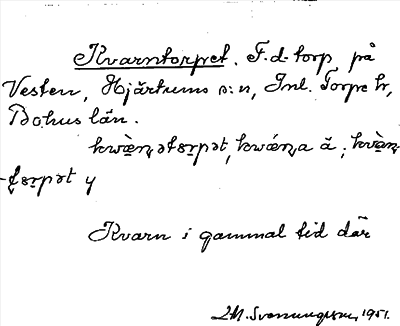 Kvarntorpet. F. d. torp på
Vesten, Hjärtums s:n, Inl. Torpe hr,
Bohus län.
kwæ̀ṇətsṛpət, kwǽṇa ä; kvæ̀ṇ-
-tsṛpət y
Kvarn i gammal tid där
M. Svenungsson, 1951.